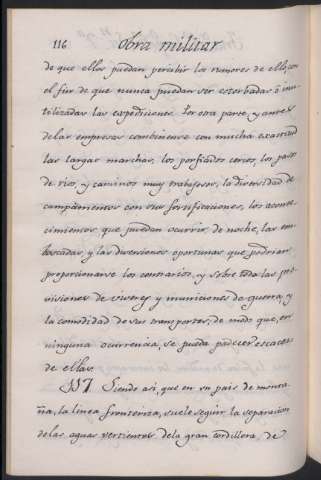 116 Obra militar
de que ellos puedan percibir los rumores de ella, con
el fin de que nunca puedan ser estorbadas ó inu-
tilizadas las expediciones. Por otra parte, y antes
de las empresas combinense con mucha exactitud
las largas marchas, los porfiados cercos, los pasos
de rios, y caminos muy trabajosos, la diversidad de
campamentos con sus fortificaciones, los aconte-
cimientos que puedan ocurrir, de noche, las em-
boscadas, y las diversiones oportunas que podrian
proporcionarse los contrarios, y sobre todo las pro-
visiones de viveres y municiones de guerra, y
la comodidad de sus transportes, de modo que, en
ninguna ocurrencia, se pueda padecer escases
de ellas.
117. Siendo asi, que en un pais de monta-
ña, la linea fronteriza, suele seguir la separacion
de las aguas vertientes de la gran cordillera, de